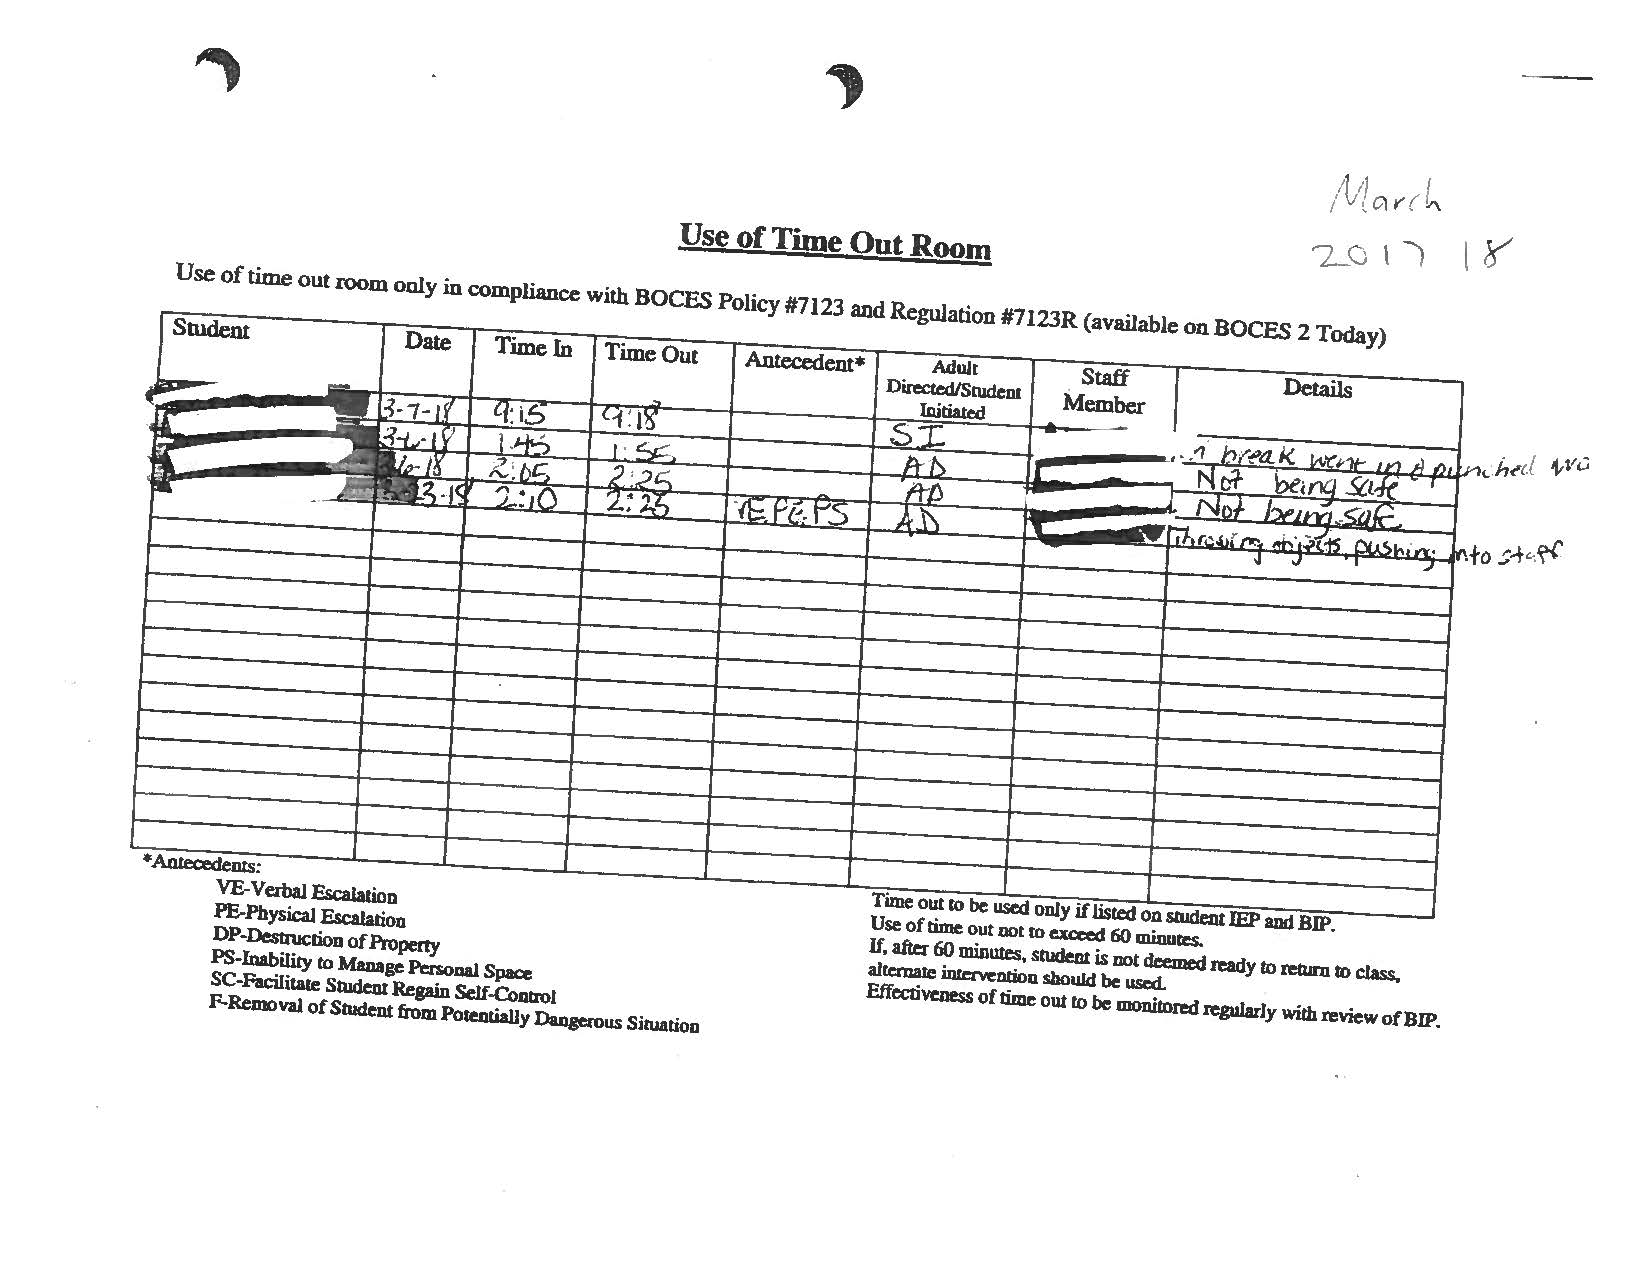 March
2017 18
Use of Time Out Room
Use of time out room only in compliance with BOCES Policy #7123 and Regulation #7123R (available on BOCES 2 Today)
Student Date Time In Time Out Antecedent* Adult Directed/Student Initiated Staff Member Details
3-7-18 9:15 9:18 S.I break went in punched
1:45 1:55 AD Not being safe
6-18 2:05 2:25 AD Not being safe
3-18 2:10 2:25 PE, PS AD throwing objects, pushing into staff
*Antecedents:
VE-Verbal Escalation
PE-Physical Escalation
DP-Destruction of Property
PS-Inability to Manage Personal Space
SC-Facilitate Student Regain Self-Control
F-Removal of Student from Potentially Dangerous Situation
Time out to be used only if listed on student IEP and BIP.
Use of time out not to exceed 60 minutes.
If, after 60 minutes, student is not deemed ready to return to class,
alternate intervention should be used.
Effectiveness of time out to be monitored regularly with review of BIP.